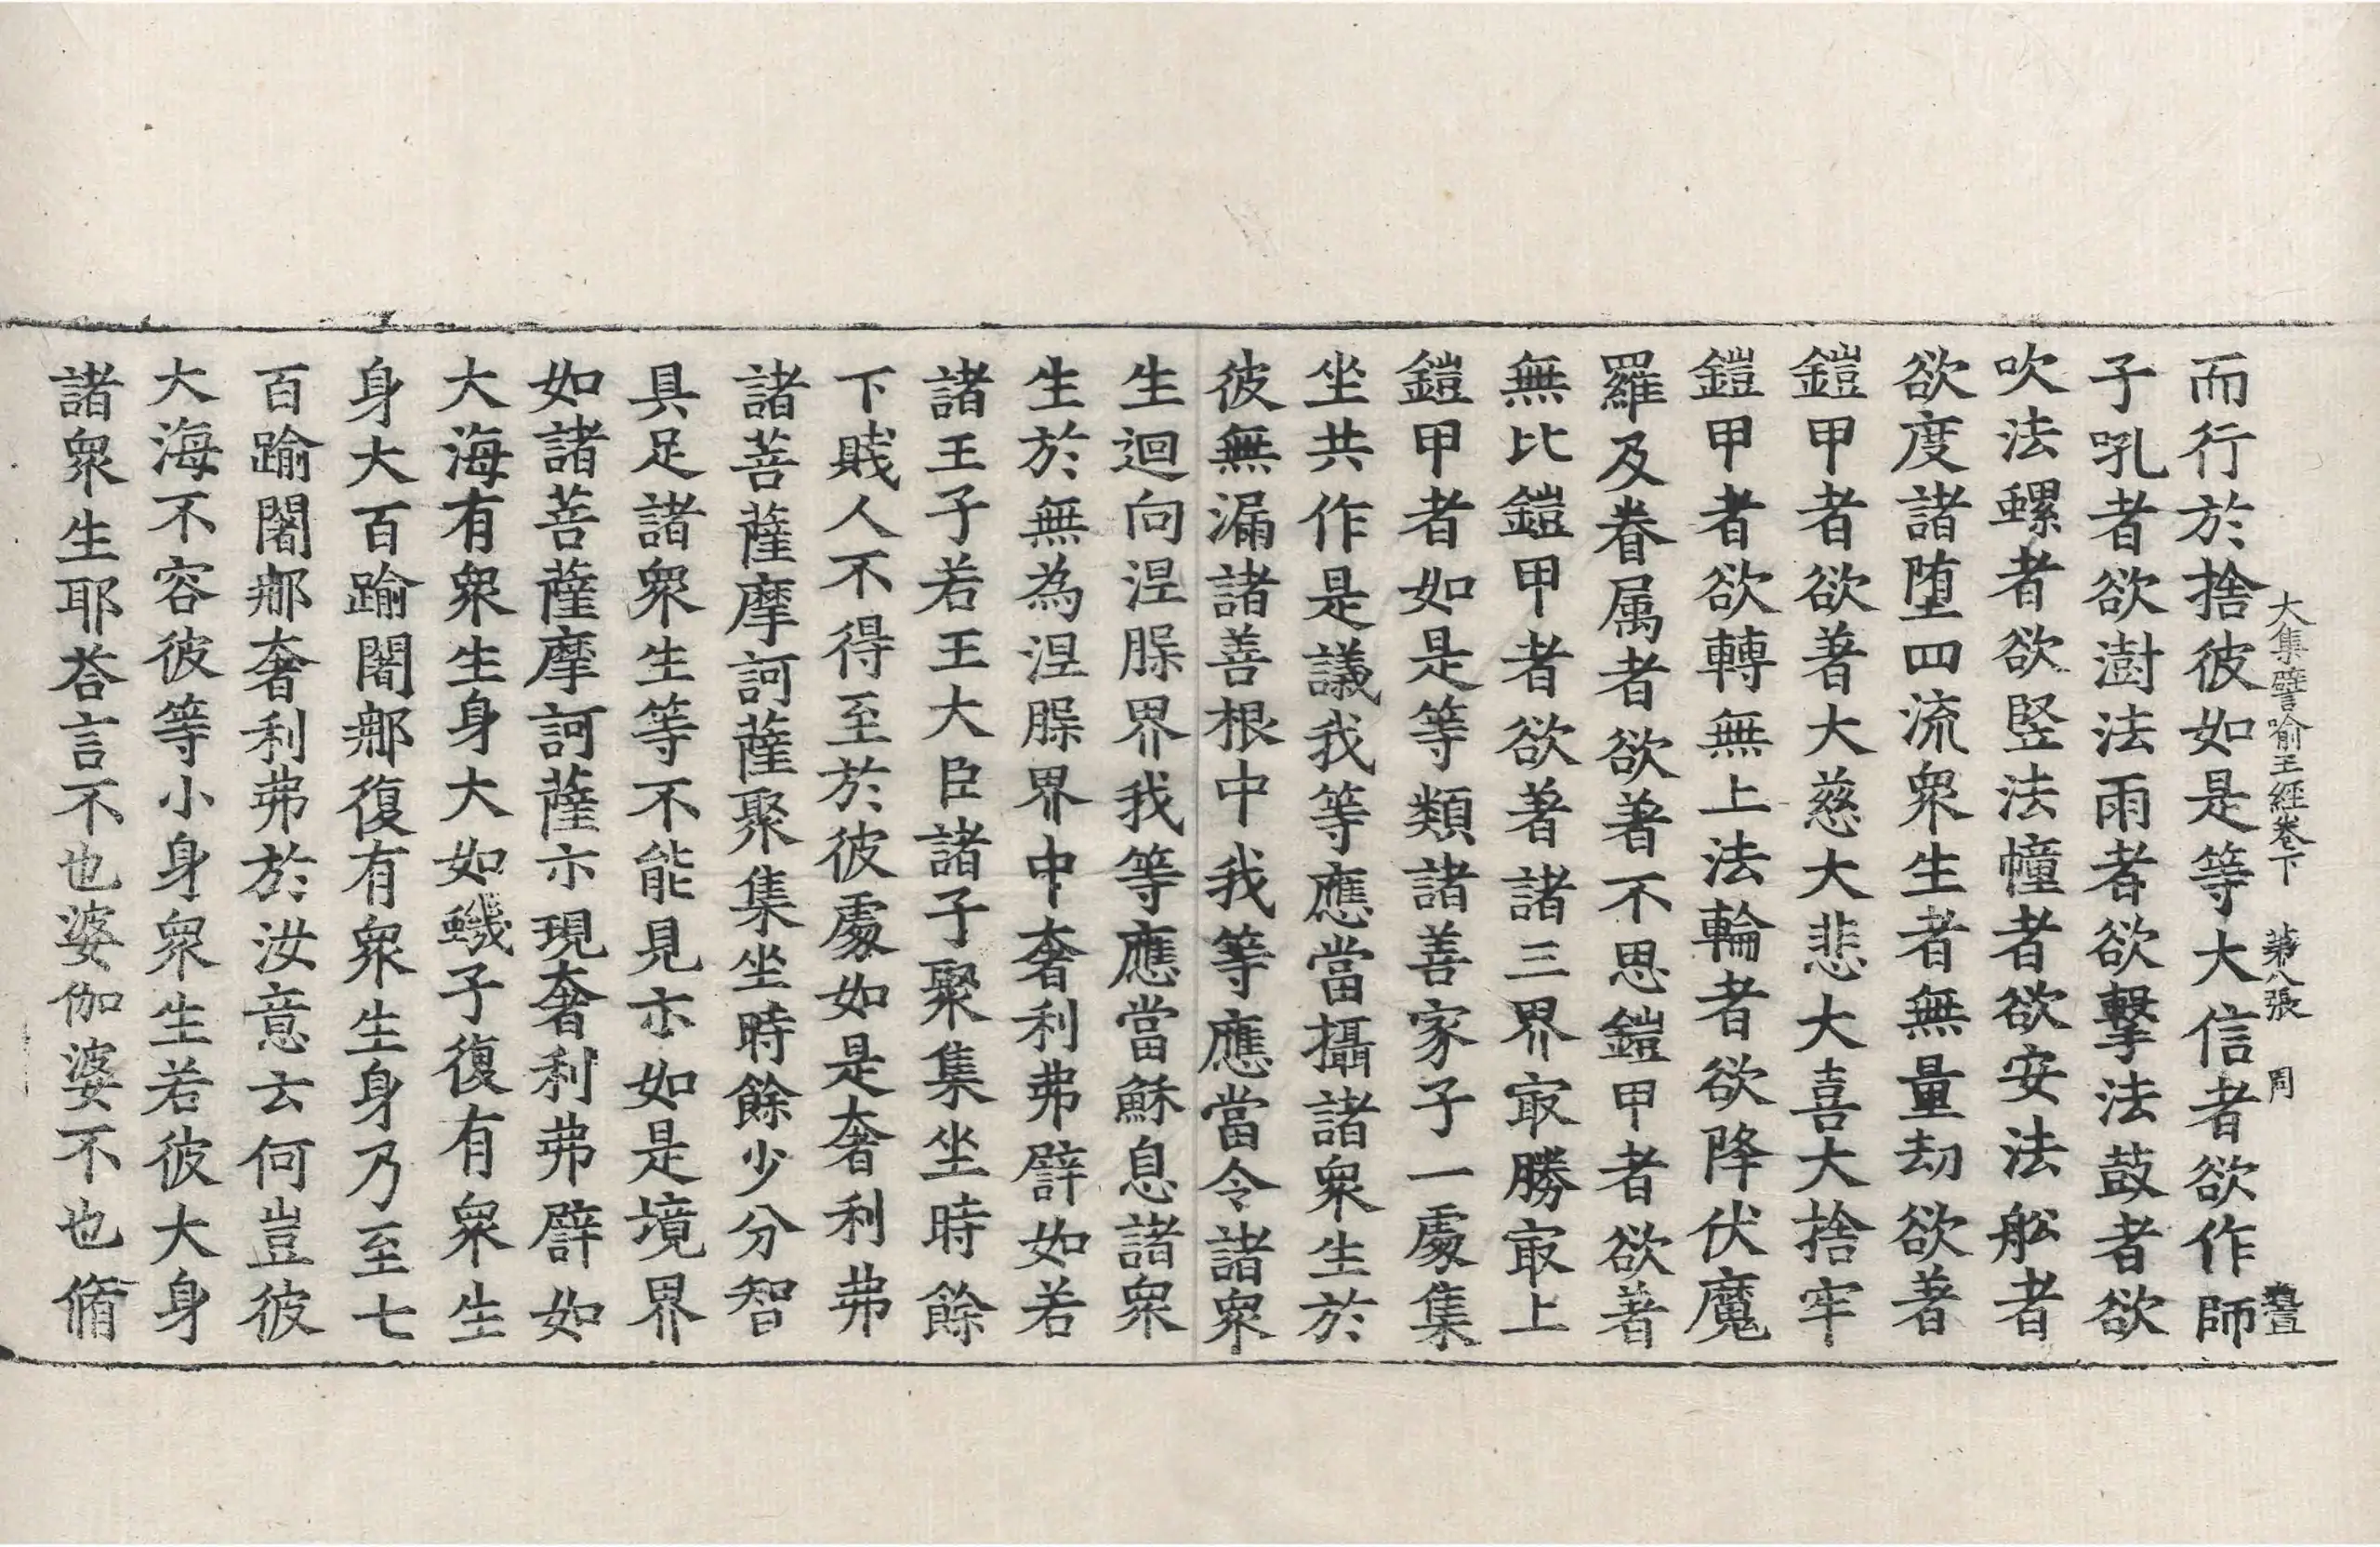 大集譬喻王經卷下 第八張 周
而行於捨彼如是等大信者欲作師
子吼者欲澍法雨者欲擊法鼓者欲
吹法螺者欲竪法幢者欲安法舩者
欲度諸堕四流衆生者無量劫欲著
鎧甲者欲著大慈大悲大喜大捨牢
鎧甲者欲轉無上法輪者欲降伏魔
羅及眷属者欲著不思鎧甲者欲著
無比鎧甲者欲著諸三界㝡勝㝡上
鎧甲者如是等類諸善家子一處集
坐共作是議我等應當攝諸衆生於
彼無漏諸善根中我等應當令諸衆
生迴向涅脲界我等應當穌息諸衆
生於無為涅脲界中奢利弗譬如若
諸王子若王大臣諸子聚集坐時餘
下賤人不得至於彼處如是奢利弗
諸菩薩摩訶薩聚集坐時餘少分智
具足諸衆生等不能見亦如是境界
如諸菩薩摩訶薩亦現奢利弗譬如
大海有衆生身大如蟣子復有衆生
身大百踰闍那復有衆生身乃至七
百踰闍那奢利弗於汝意云何豈彼
大海不容彼等小身衆生若彼大身
諸衆生耶荅言不也婆伽婆不也脩